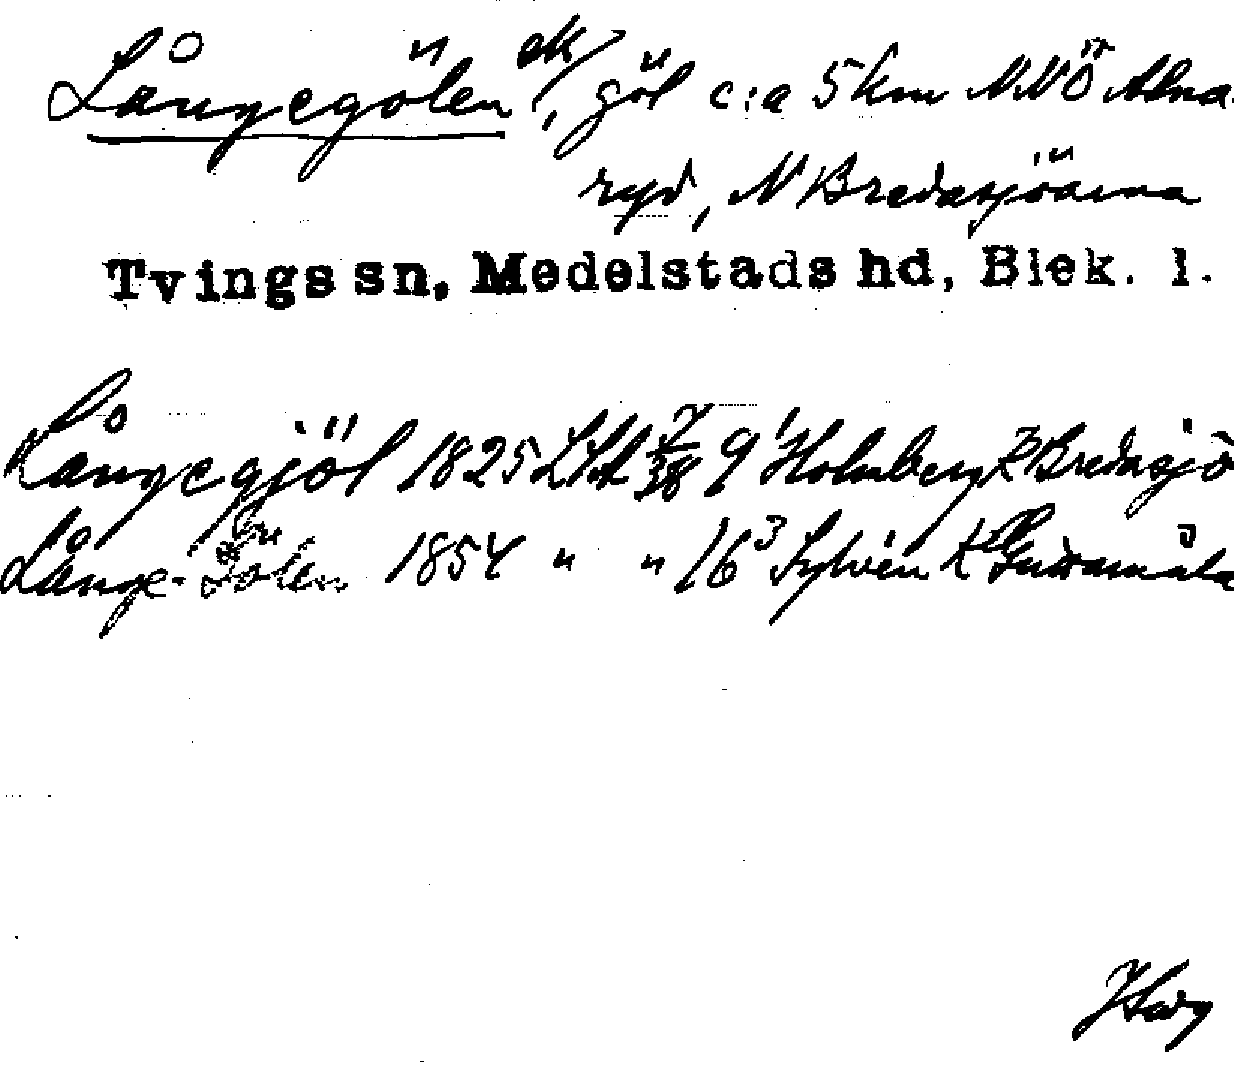 Långegölen ek/, göl c:a 5 km NNÖ Alna-
ryd, N Bredasjöarna
Tvings sn, Medelstads hd, Blek. l.
Långegjöl 1825 LSA 9' Holmberg K Bredasjö
Långe-Gölen 1854 " " 16³ Sylvén K Gussamåla